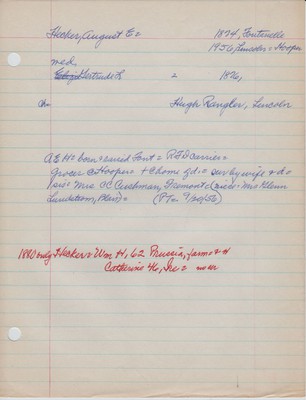 Hecker, August E = 1874, Fontenelle
1956, Lincoln = Hooper
wed,
Gertrude L = 1876,
ch = Hugh Rangler, Lincoln
A E H = born + wed Font = RFD carrier =
Grocer @ Hooper = + @ home gd. = surv by wife + d =
sis = Mrs CC Cushman, Fremont = (niece = Mrs Glenn
Lundstrom, Blair) = (PT = 9/20/56)
1880 only Hecker = Wm H, 62 Prussia, farm = + w
Catherine 46, Ire =